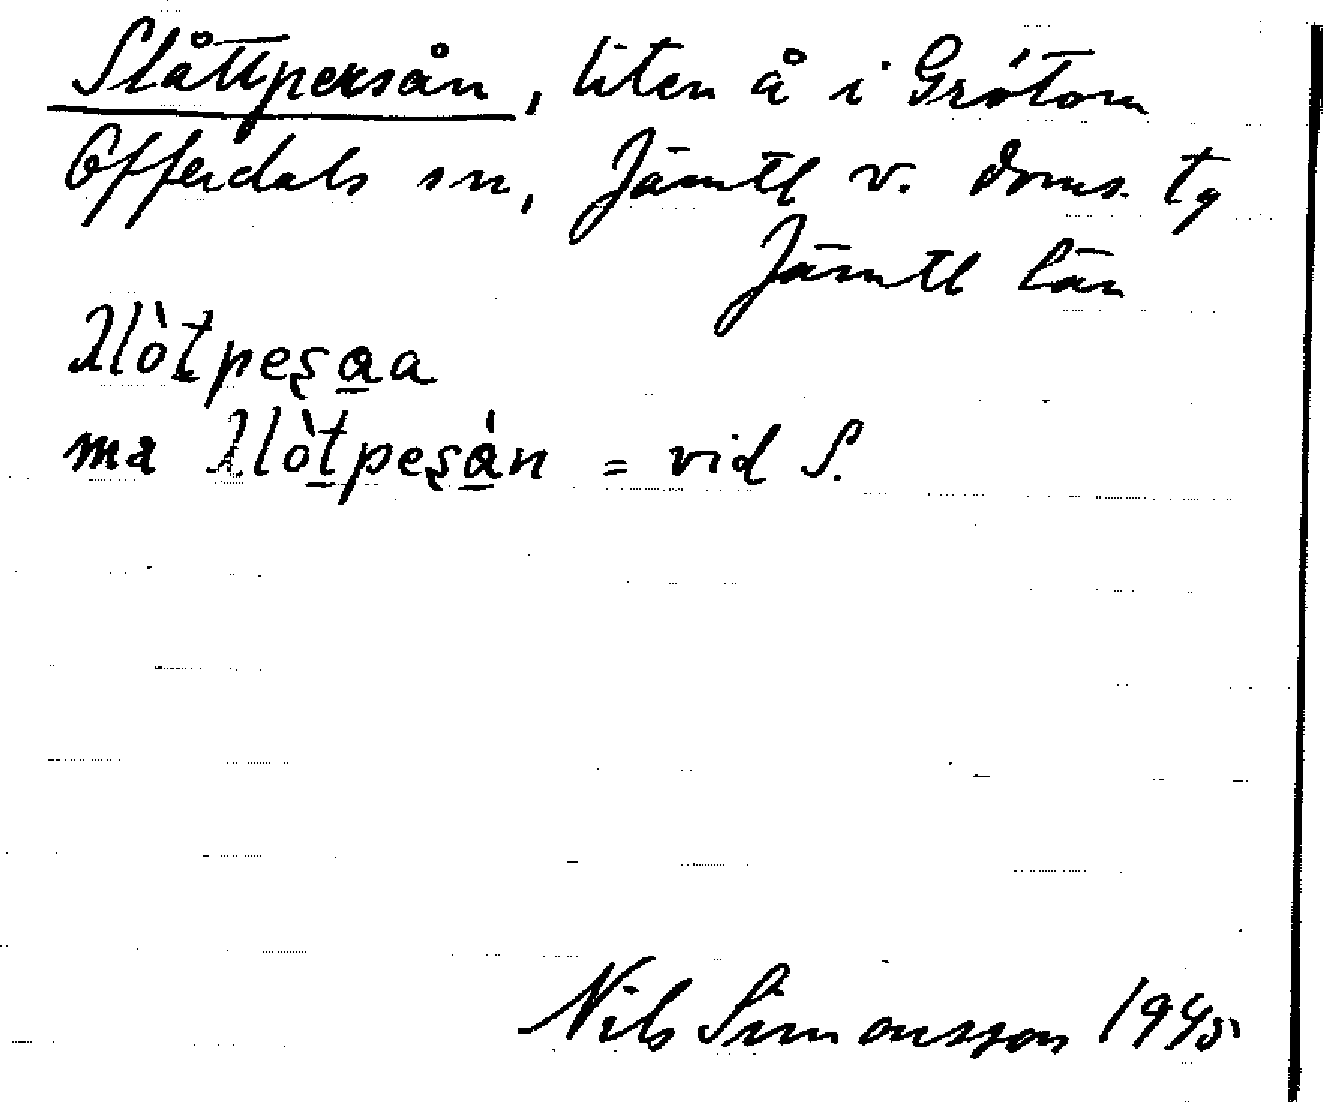 Slåttpersån, liten å i Grötom
Offerdals sn, Jämtl v. doms. tg
Jämtl län
ma = vid S.
Nils Simonsson 1945